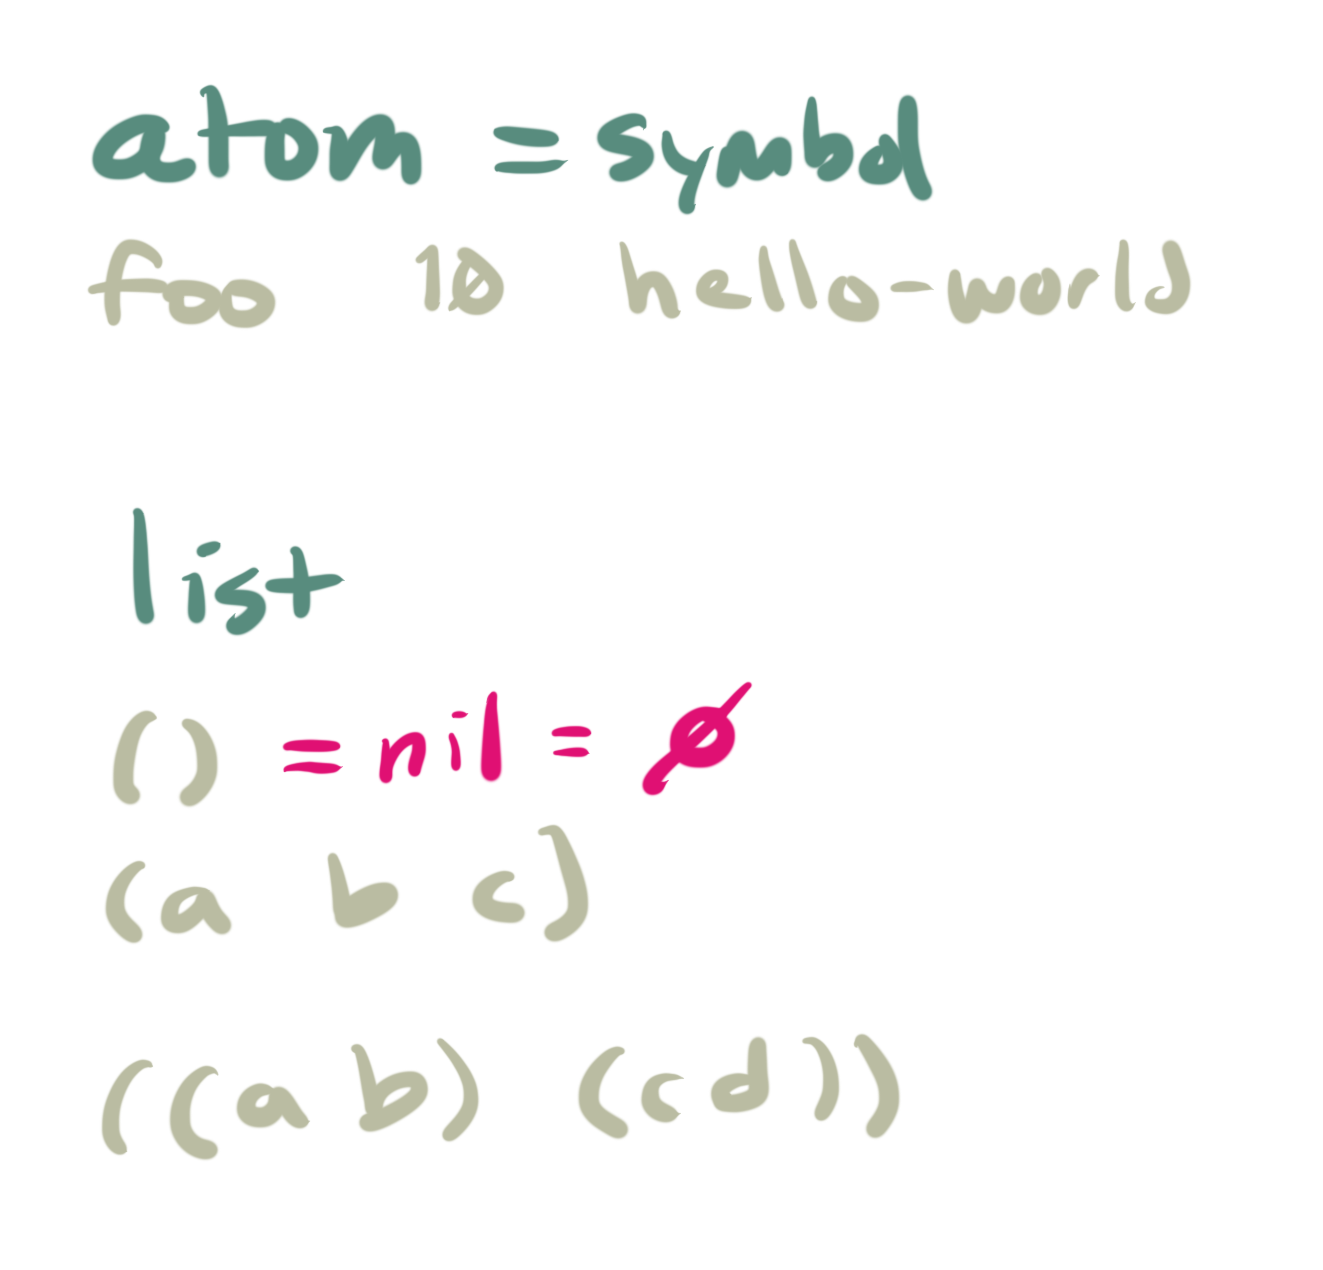 atom = symbol
foo 10 hello-world
list
() = nil = ∅
(a b c)
((a b) (c d))